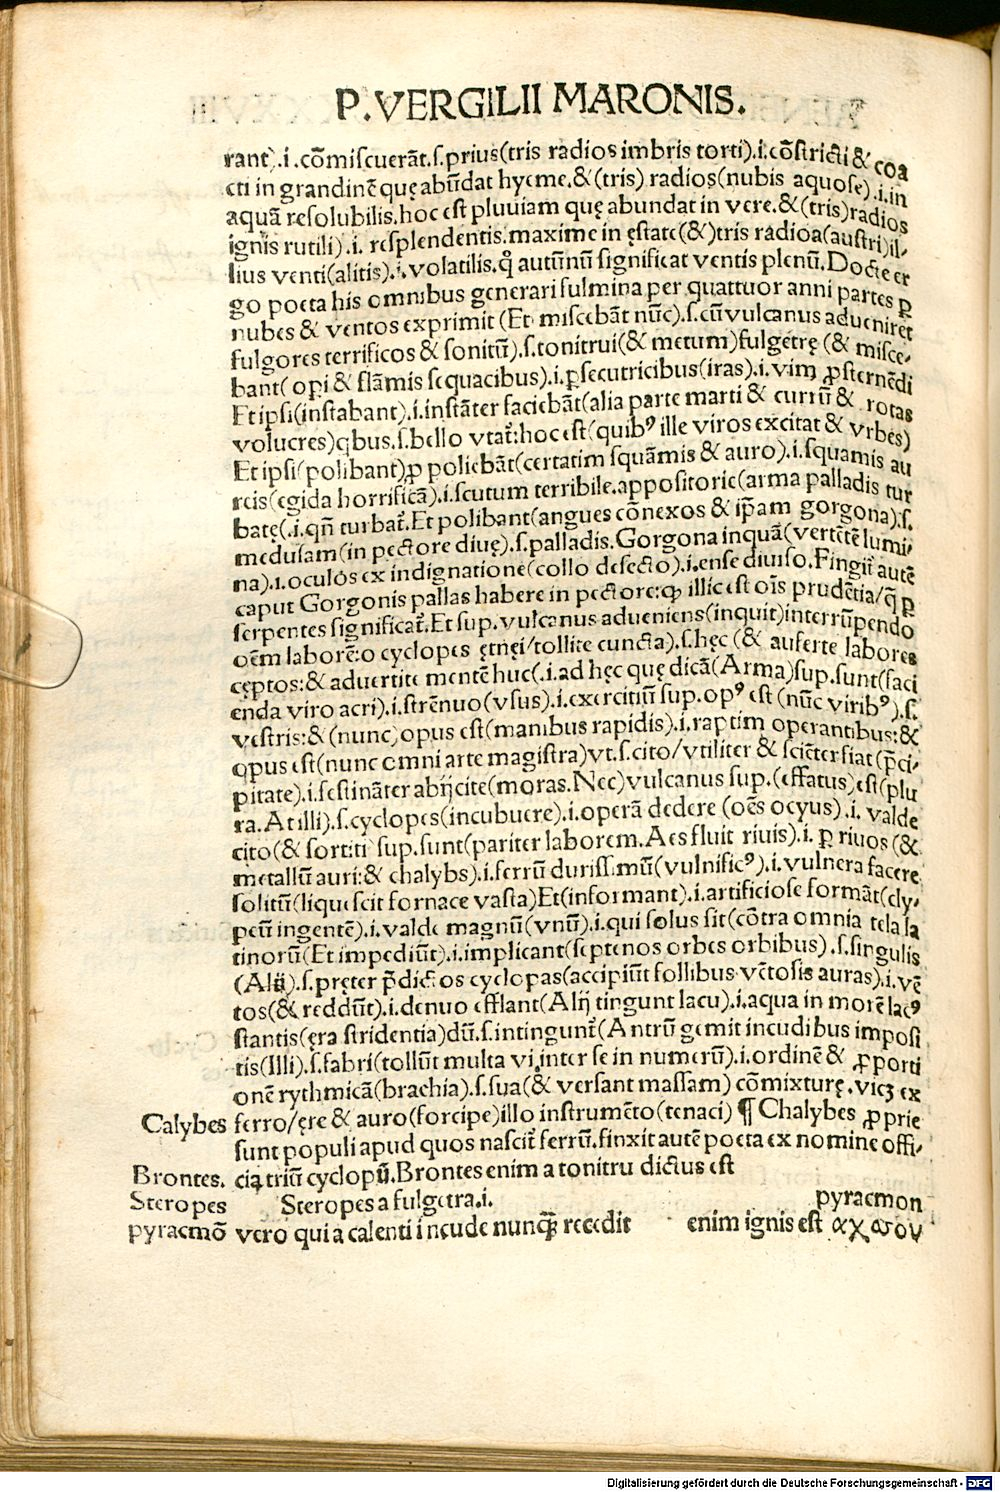 P. VERGILII MARONIS.
rant).i.cōmiscuerāt.s.prius(tris radios imbris torti).i.cōstricti & coa
cti in grandinē quę abūdat hyeme.&(tris) radios(nubis aquose).i.in
aquā resolubilis.hoc est pluuiam quę abundat in vere.&(tris)radios
ignis rutili).i. resplendentis.maxime in ęstate(&)tris radioa(austri)il-
lius venti(alitis).i.volatilis.ꝙ autūnū significat ventis plenū.Docte er
go poeta his omnibus generari fulmina per quattuor anni partes ꝑ
nubes & ventos exprimit (Et miscebāt nūc).s.cū vulcanus adueniret
fulgores terrificos & sonitū).s.tonitrui(& metum)fulgetrę (& misce-
bant(oꝑi & flāmis sequacibus).i.ꝑsecutricibus(iras).i.vim ꝓsternēdi
Et ipsi(instabant).i.instāter faciebāt(alia parte marti & currū & rotas
volucres)qbus.s.bello vtat̃:hoc est(quibꝰ ille viros excitat & vrbes)
Et ipsi(polibant)ꝓ poliebāt(certatim squāmis & auro).i.squamis au
reis(egida horrificā).i.scutum terribile.appositorie(arma palladis tur
batę(.i.qñ turbat̃.Et polibant(angues cōnexos & ip̄am gorgona).s.
medusam(in pectore diuę).s.palladis.Gorgona inquā(vertētē lumi-
na).i.oculos ex indignatione(collo desecto).i.ense diuiso.Fingit̃ autē
caput Gorgonis pallas habere in pectore:ꝙ illic est oīs prudētia/q̄ ꝑ
serpentes significat̃.Et sup.vulcanus adueniens(inquit)interrūpendo
oēm laborē:o cyclopes ętnęi/tollite cuncta).s.hęc (& auferte labores
cęptos:& aduertite mentē huc(.i.ad hęc quę dicā(Arma)sup.sunt(faci
enda viro acri).i.strēnuo(vsus).i.exercitiū sup.opꝰ est (nūc viribꝰ).s.
vestris:&(nunc)opus est(manibus rapidis).i.raptim operantibus:&
opus est(nunc omni arte magistra)vt.s.cito/vtiliter & sciēter fiat(p̄ci-
pitate).i.festināter abijcite(moras.Nec)vulcanus sup.(effatus)est(plu
ra.At illi).s.cyclopes(incubuere).i.operā dedere (oēs ocyus).i. valde
cito(& sortiti sup.sunt(pariter laborem.Aes fluit riuis).i. ꝑ riuos (&
metallū auri:& chalybs).i.ferrū durissimū(vulnificꝰ).i.vulnera facere
solitū(liquescit fornace vasta)Et(informant).i.artificiose formāt(cly-
peū ingentē).i.valde magnū(vnū).i.qui solus sit(cōtra omnia tela la
tinorū(Et impediūt).i.implicant(septenos orbes orbibus).s.singulis
(Alij).s.pręter p̄dictos cyclopas(accipiūt follibus vētosis auras).i.vē
tos(& reddūt).i.denuo efflant(Alij tingunt lacu).i.aqua in morē lacꝰ
stantis(ęra stridentia)dū.s.intingunt̃(Antrū gemit incudibus imposi
tis(Illi).s.fabri(tollūt multa vi inter se in numerū).i.ordinē & ꝓporti
onē rythmicā(brachia).s.sua(& versant massam) cōmixturę.vicꝫ ex
Calybes ferro/ęre & auro(forcipe)illo instrumēto(tenaci) ¶ Chalybes ꝓprie
sunt populi apud quos nascit̃ ferrū.finxit autē poeta ex nomine offi-
Brontes. cia triū cyclopū.Brontes enim a tonitru dictus est
Steropes Steropes a fulgetra.i. pyraemon
pyracmō vero qui a calenti incude nunqꝫ recedit enim ignis est
Digitalisierung gefördert durch die Deutsche Forschungsgemeinschaft - DFG